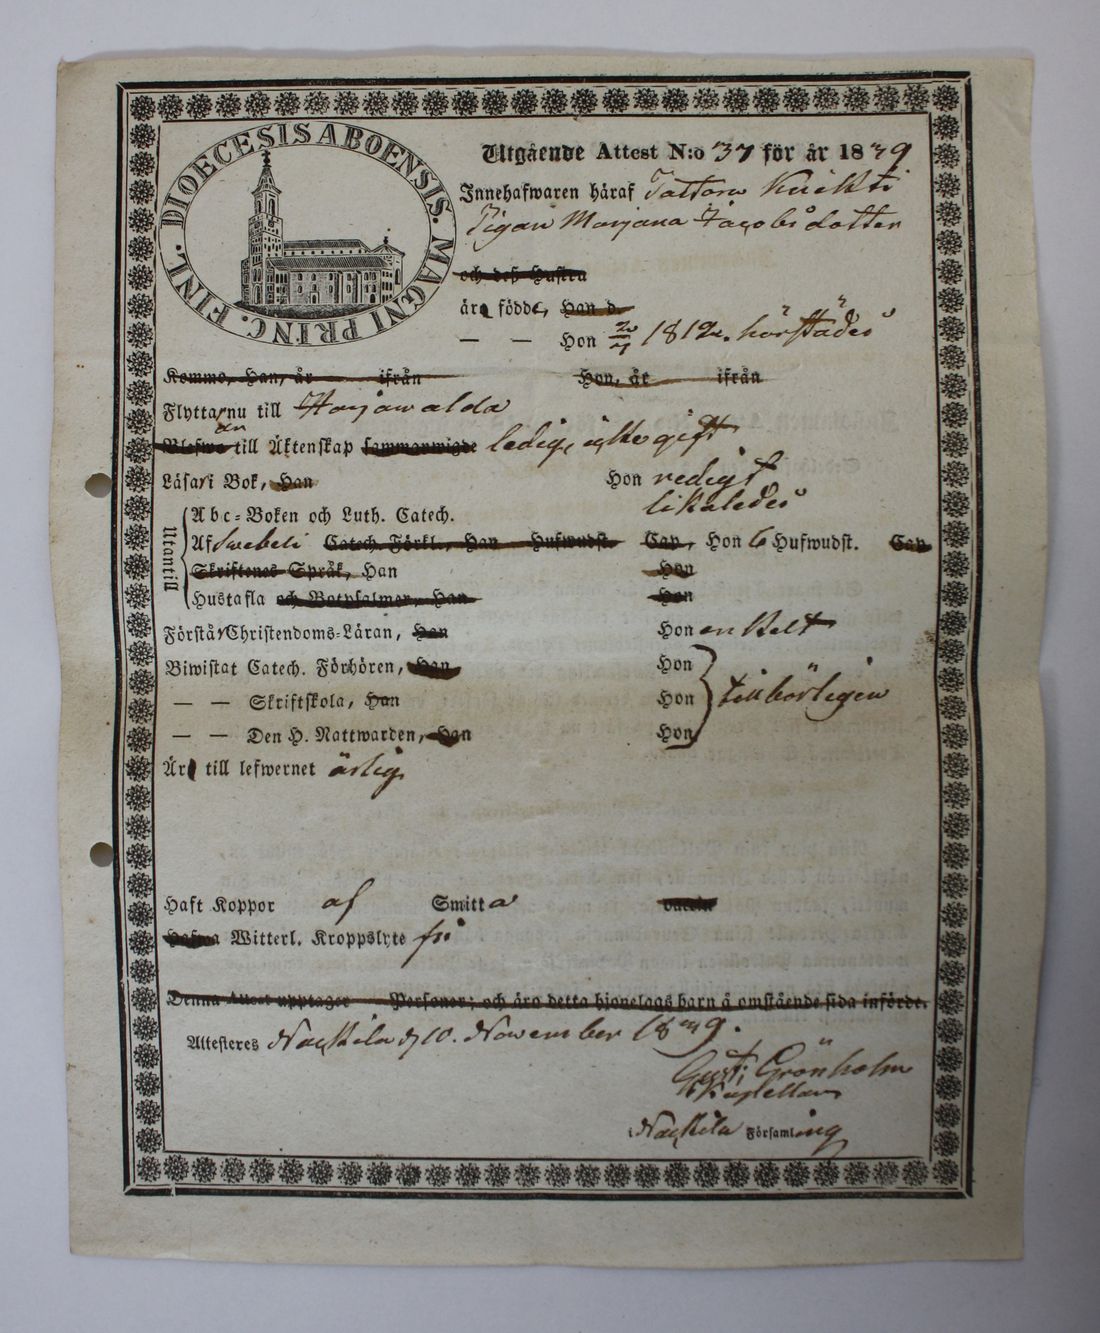 DIOECESIS ABOENSIS. MAGNI PRINC. FINL.
Utgående Attest N:o 37 för år 1839
Innehafwaren häraf Tattara Knekti
Pigan Marjana Jacobsdotter
och deß Hustru
äro födde, Han d.
— — Hon 1812. härstädes
Kommo, Han, år ifrån Hon, år ifrån
Flytta nu till Harjawalda
Blefwo till Äktenskap sammanwigde ledig, icke gift
Läsa i Bok, Han Hon redigt
Abc-Boken och Luth. Catech. likaledes
Utantill
Af Swebeli Catech. Förkl., Han Hufwudst. Cap, Hon 6 Hufwudst. Cap
Skriftenes Språk, Han Hon
Hustafla och Botpsalmer, Han Hon
Förstår Christendoms-Läran, Han Hon enkelt
Biwistat Catech. Förhören, Han Hon
— — Skriftskola, Han Hon tillbörligen
— — Den H. Nattwarden, Han Hon
Äro till lefwernet ärlig
Haft Koppor af Smitta
Hafwa Witterl. Kroppslyte fri
Denna Attest upptager Personer; och äro detta hjonelags barn å omstående sida införde.
Attesteres Nackila d 10. November 1839.
Gust: Grönholm
Kapellan
i Nackila Församling